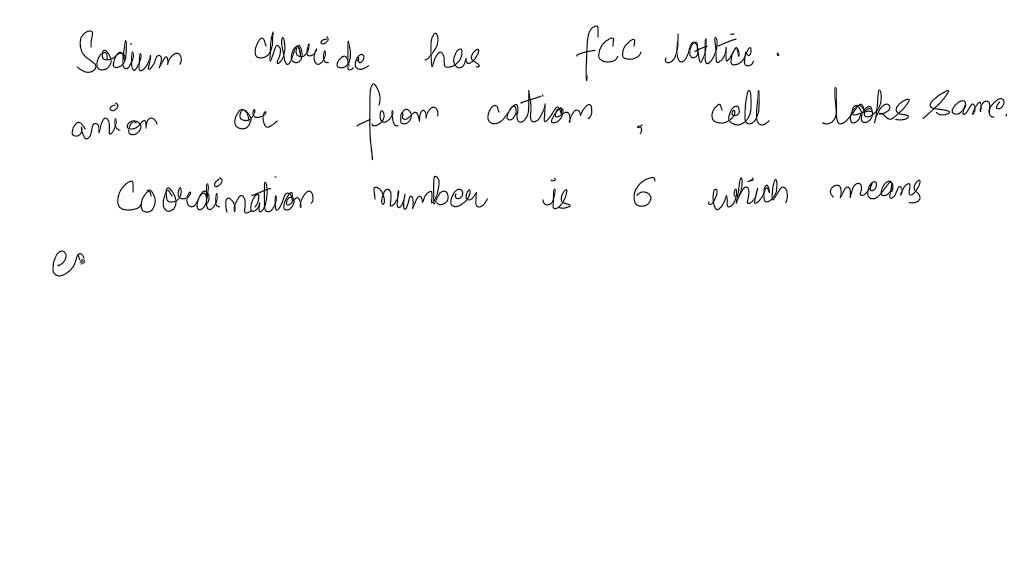 Sodium chloride has fcc lattice.
anion or from cation, cell looks same.
Coordination number is 6 which means
ea